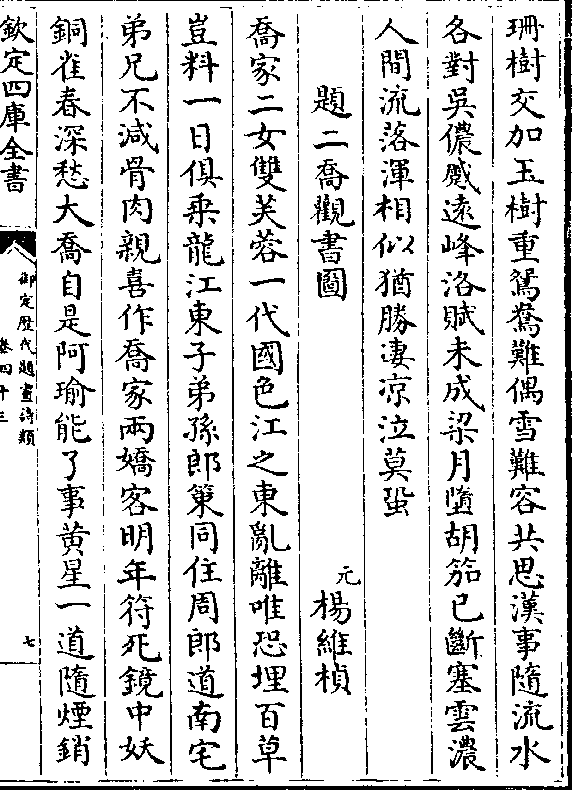 珊樹交加玉樹重鴛鴦難偶雪難容共思漢事隨流水
各對吳儂蹙遠峰洛賦未成梁月墮胡笳已斷塞雲濃
人間流落渾相似猶勝凄凉泣莫蛩
題二喬觀書圖
元楊維楨
喬家二女雙芙蓉一代國色江之東亂離唯恐埋百草
豈料一日俱乘龍江東子弟孫郎策同住周郎道南宅
弟兄不減骨肉親喜作喬家兩嬌客明年符死鏡中妖
銅雀春深愁大喬自是阿瑜能了事黄星一道隨煙銷
欽定四庫全書
御定歷代題畫詩類
卷四十三
七